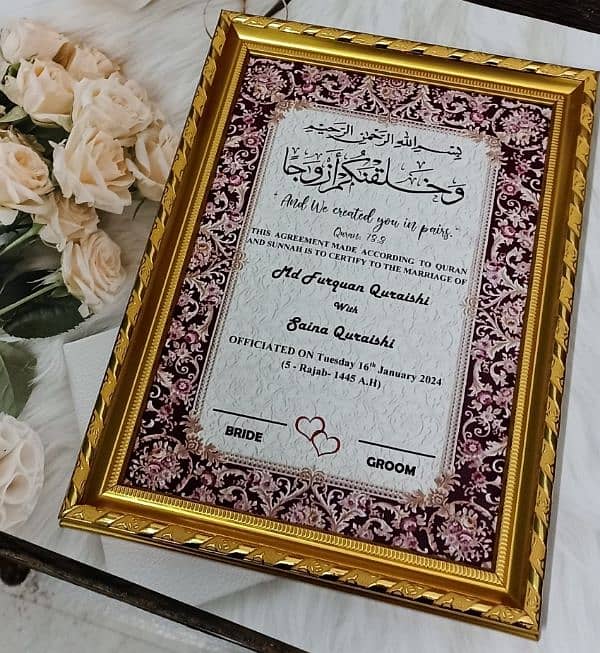 بسم الله الرحمن الرحيم
وخلقنكم أزوجا
"And We created you in pairs."
Quran: 78:8
THIS AGREEMENT MADE ACCORDING TO QURAN
AND SUNNAH IS TO CERTIFY TO THE MARRIAGE OF
Md Furquan Quraishi
With
Saina Quraishi
OFFICIATED ON Tuesday 16th January 2024
(5 - Rajab- 1445 A.H)
BRIDE
GROOM